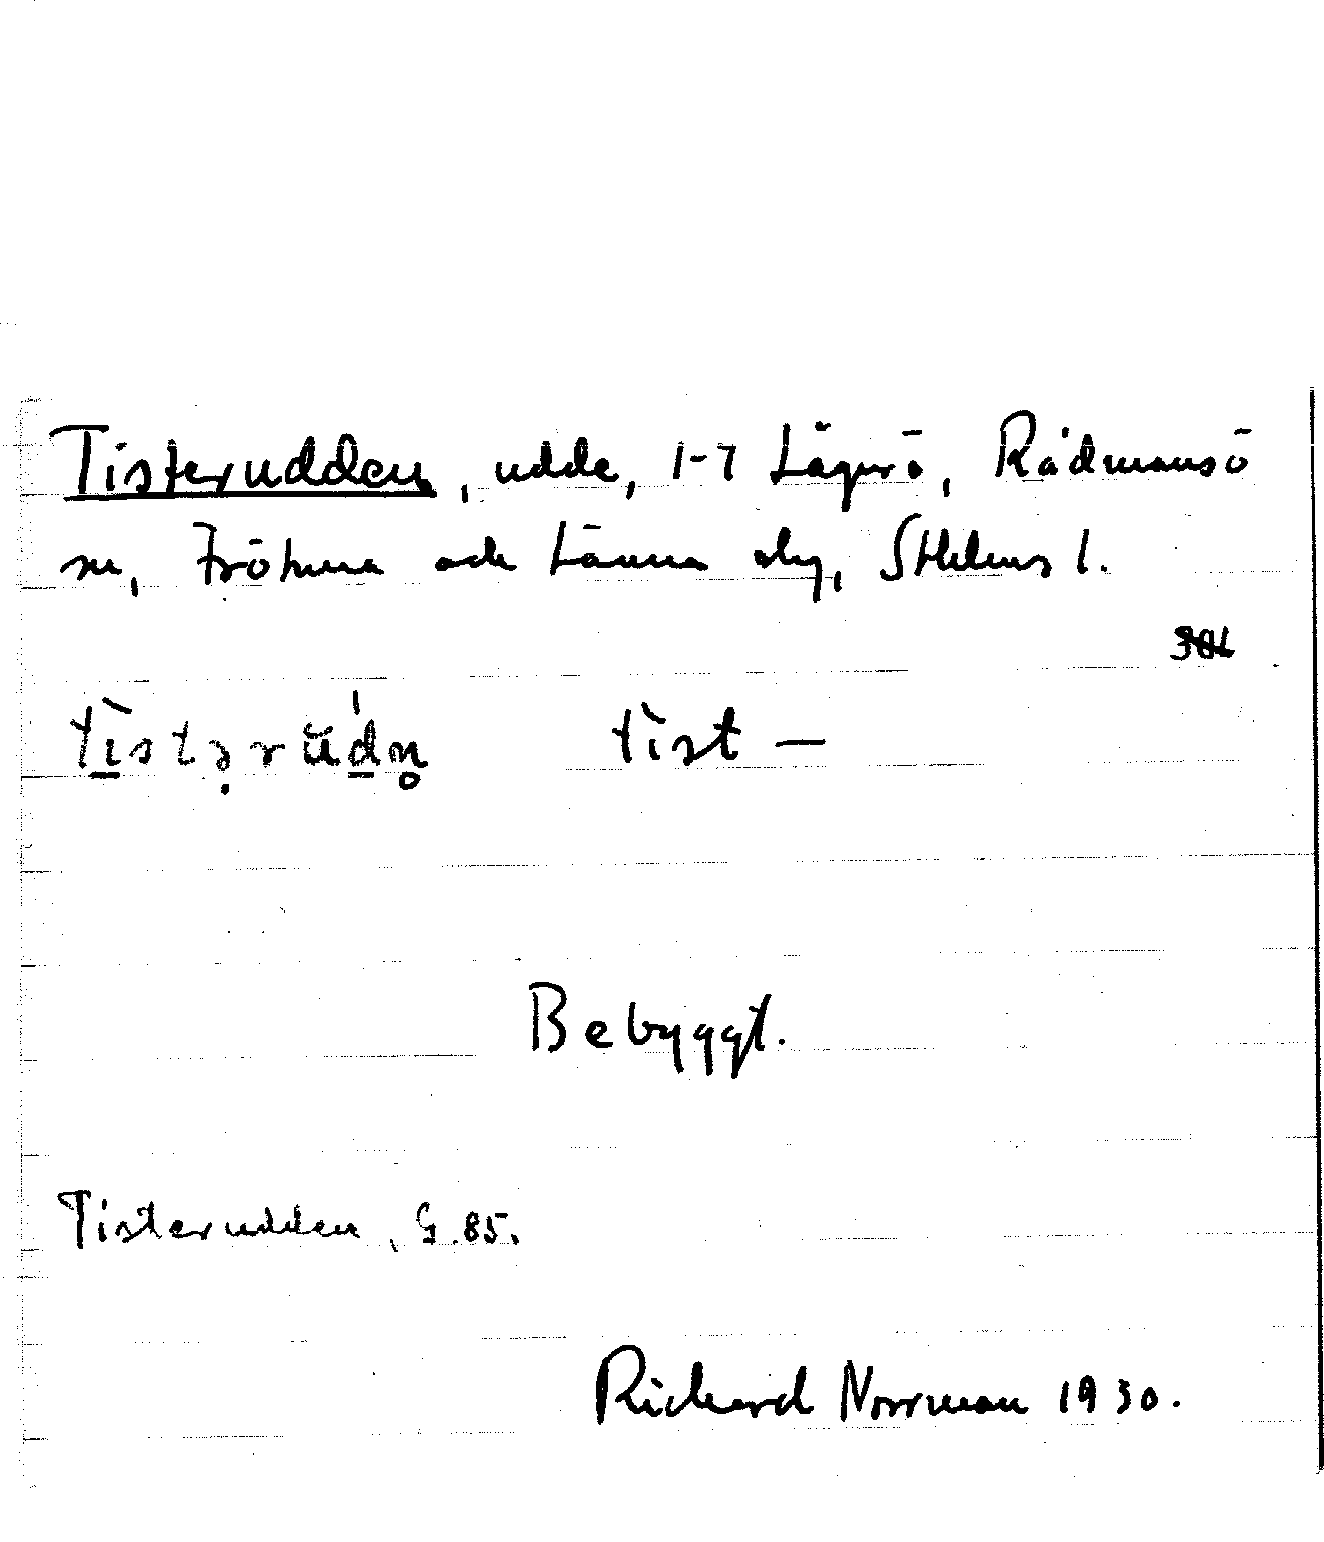 Tisterudden, udde, 1-7 Lägerö, Rådmansö
sn, Frötuna och Länna slg, Sthlms l.
tìstərŭ́dn̥ tìst —
Bebyggt.
Tisterudden, G. 85.
Richard Norrman 1930.